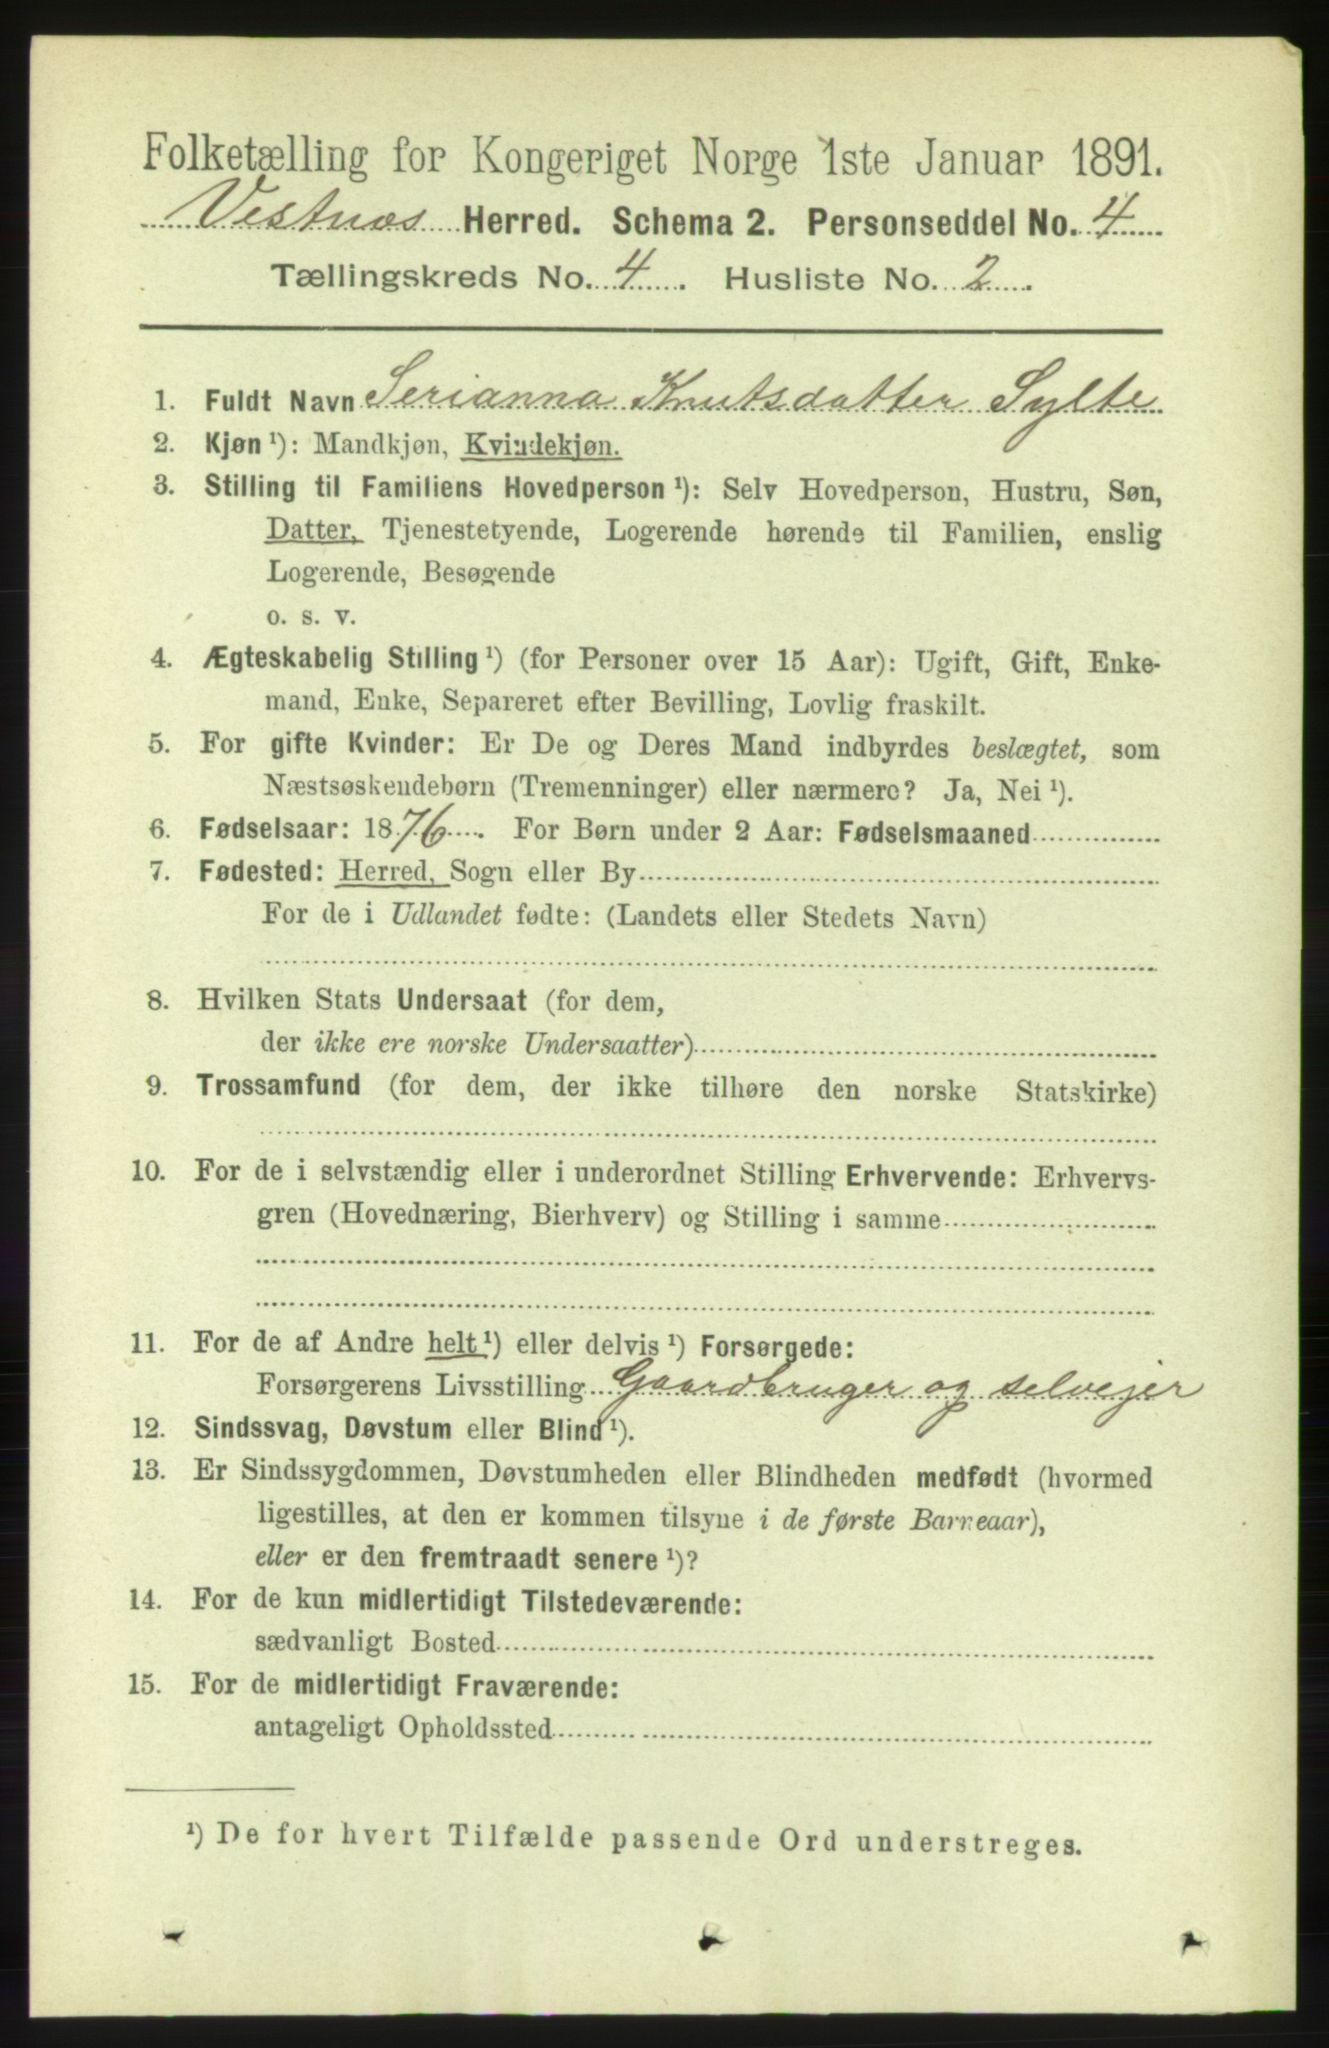 Folketælling for Kongeriget Norge 1ste Januar 1891.
Vestnæs Herred. Schema 2. Personseddel No. 4
Tællingskreds No. 4. Husliste No. 2.
1. Fuldt Navn Serianna Knutsdatter Sylte
2. Kjøn ¹): Mandkjøn, Kvindekjøn.
3. Stilling til Familiens Hovedperson ¹): Selv Hovedperson, Hustru, Søn,
Datter, Tjenestetyende, Logerende hørende til Familien, enslig
Logerende, Besøgende
o. s. v.
4. Ægteskabelig Stilling ¹) (for Personer over 15 Aar): Ugift, Gift, Enke-
mand, Enke, Separeret efter Bevilling, Lovlig fraskilt.
5. For gifte Kvinder: Er De og Deres Mand indbyrdes beslægtet, som
Næstsøskendebørn (Tremenninger) eller nærmere? Ja, Nei ¹).
6. Fødselsaar: 1876. For Børn under 2 Aar: Fødselsmaaned
7. Fødested: Herred, Sogn eller By
For de i Udlandet fødte: (Landets eller Stedets Navn)
8. Hvilken Stats Undersaat (for dem,
der ikke ere norske Undersaatter)
9. Trossamfund (for dem, der ikke tilhøre den norske Statskirke)
10. For de i selvstændig eller i underordnet Stilling Erhvervende: Erhvervs-
gren (Hovednæring, Bierhverv) og Stilling i samme
11. For de af Andre helt ¹) eller delvis ¹) Forsørgede:
Forsørgerens Livsstilling Gaardbruger og selvejer
12. Sindssvag, Døvstum eller Blind ¹).
13. Er Sindssygdommen, Døvstumheden eller Blindheden medfødt (hvormed
ligestilles, at den er kommen tilsyne i de første Barneaar),
eller er den fremtraadt senere ¹)?
14. For de kun midlertidigt Tilstedeværende:
sædvanligt Bosted
15. For de midlertidigt Fraværende:
antageligt Opholdssted
¹) De for hvert Tilfælde passende Ord understreges.